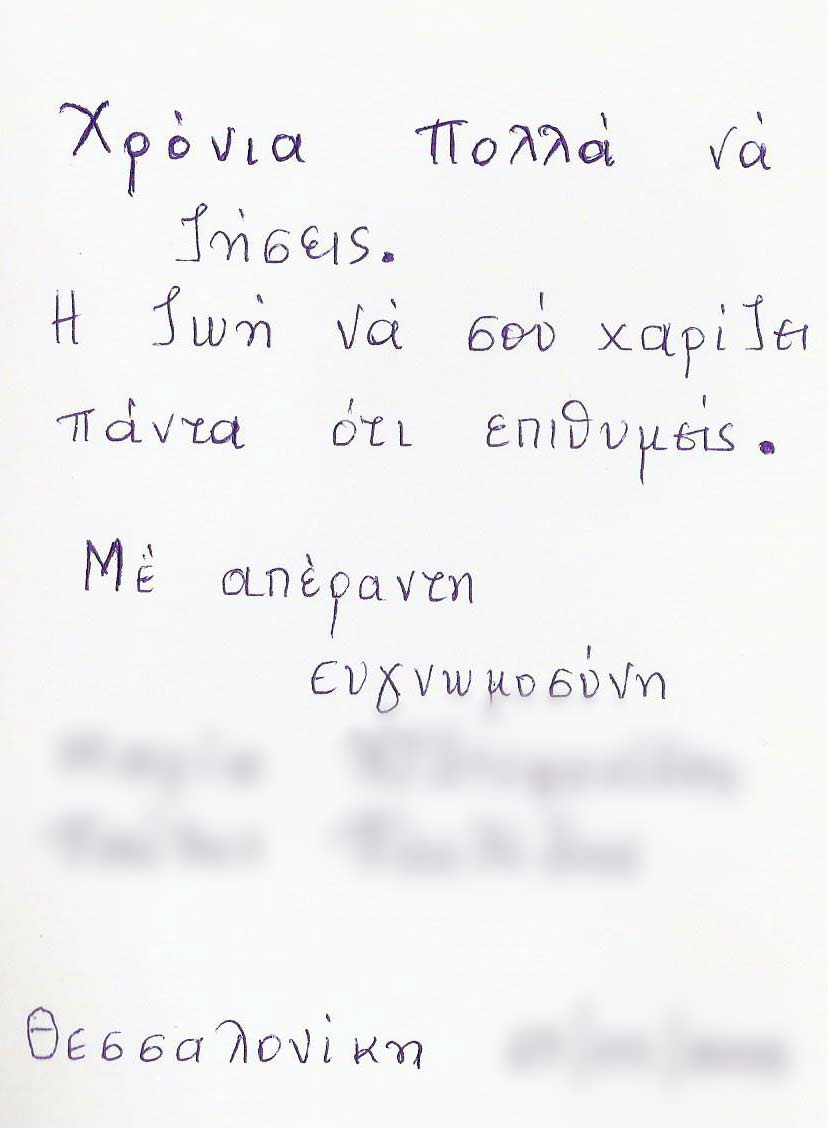 Χρόνια πολλά νά
ζήσεις.
Η ζωή νά σού χαρίζει
πάντα ότι επιθυμείς.
Μέ απέραντη
ευγνωμοσύνη
Θεσσαλονίκη